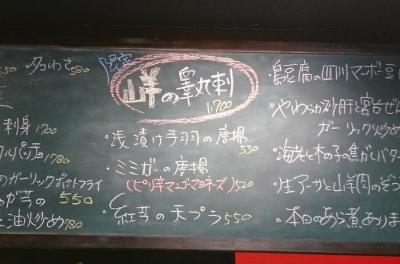 タコわさ 580
刺身 1700
1780
のガーリックポテトフライ
が芋の 550
油炒め 780
山羊の睾丸刺
1700
・浅漬け手羽の唐揚
550
・ミミガーの唐揚
(ピリ辛マンゴーマヨネーズ) 520
・紅芋の天プラ 550
島豆腐の四川マーボー豆
・やわらか砂肝と宮古ぜん
ガーリック炒め
・海老と木の子の焦がしバター
・生アーサと山羊肉のぞう
・本日のあら煮あります